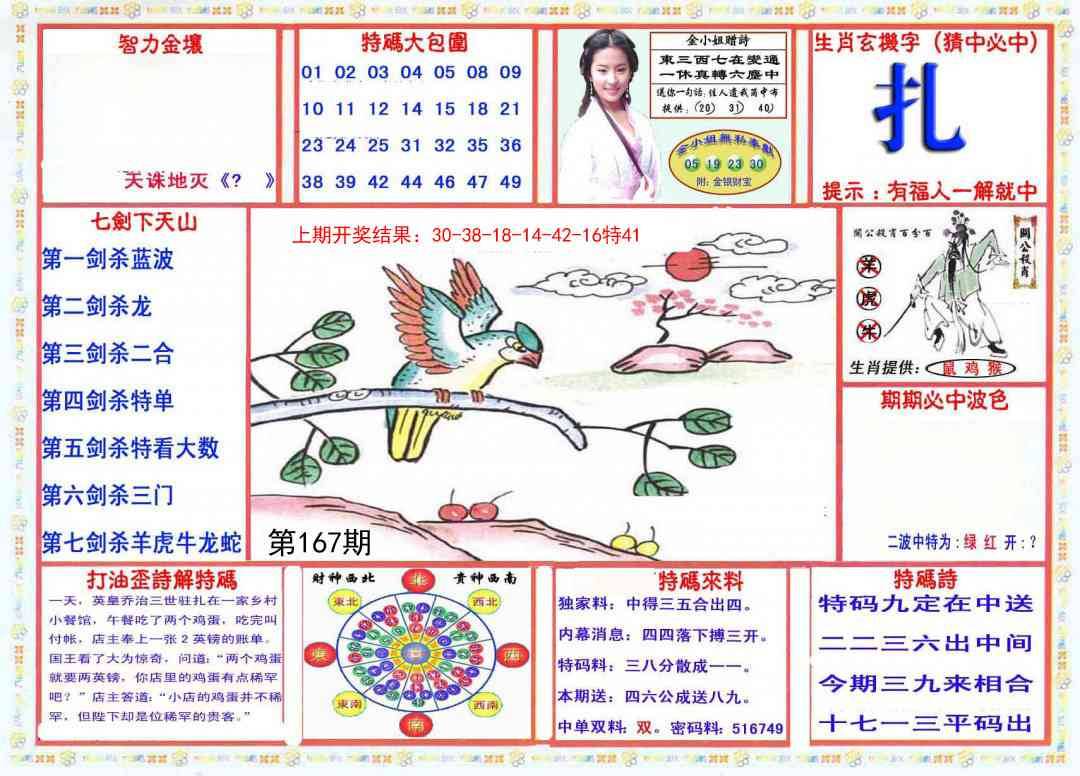 智力金壤
天诛地灭《? 》
特碼大包圍
01 02 03 04 05 08 09
10 11 12 14 15 18 21
23 24 25 31 32 35 36
38 39 42 44 46 47 49
金小姐赠詩
東三西七在變通
一休真轉六塵中
送你一句话:佳人遺我茼中布
提供:(20) 31) 40)
金小姐無私奉點
05 19 23 30
附:金银财宝
生肖玄機字(猜中必中)
扎
提示:有福人一解就中
七劍下天山
第一剑杀蓝波
第二剑杀龙
第三剑杀二合
第四剑杀特单
第五剑杀特看大数
第六剑杀三门
第七剑杀羊虎牛龙蛇
上期开奖结果:30-38-18-14-42-16特41
第167期
關公殺肖百分百
關公殺肖
羊
虎
牛
生肖提供:鼠 鸡 猴
期期必中波色
二波中特为:绿 红 开:?
打油歪詩解特碼
一天,英皇乔治三世驻扎在一家乡村
小餐馆,午餐吃了两个鸡蛋,吃完叫
付帐,店主奉上一张2英镑的账单。
国王看了大为惊奇,问道:“两个鸡蛋
就要两英镑,你店里的鸡蛋有点稀罕
吧?”店主答道:“小店的鸡蛋并不稀
罕,但陛下却是位稀罕的贵客。”
財神西北 貴神西南
北
東北 西北
西
東南 西南
南
特碼來料
独家料:中得三五合出四。
内幕消息:四四落下搏三开。
特码料:三八分散成一一。
本期送:四六公成送八九。
中单双料:双。密码料:516749
特碼詩
特码九定在中送
二二三六出中间
今期三九来相合
十七一三平码出